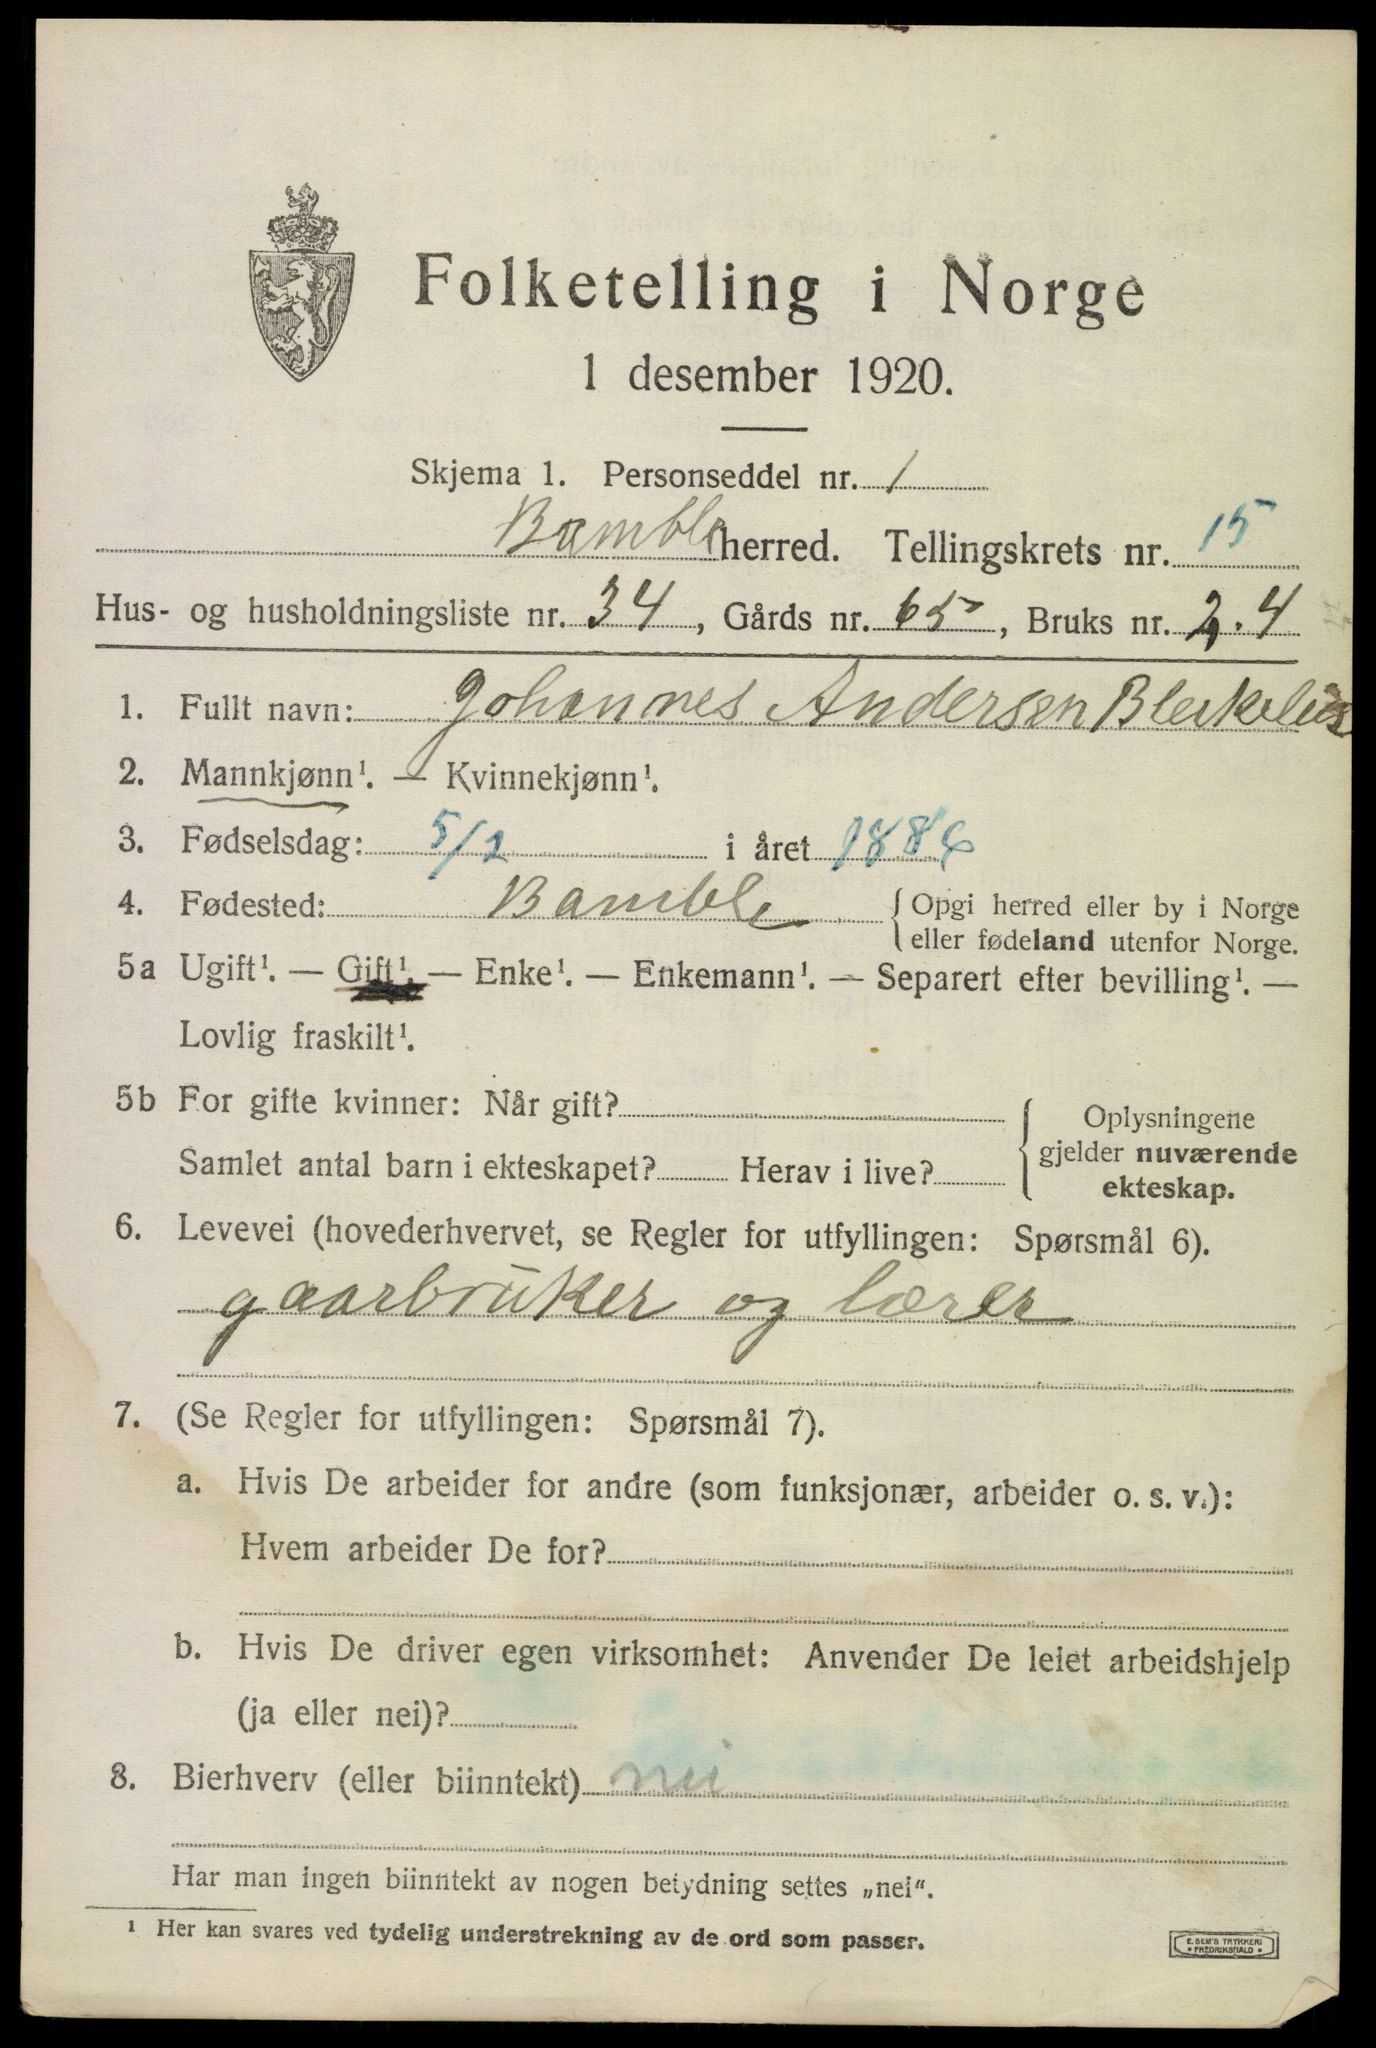 Folketelling i Norge
1 desember 1920.
Skjema 1. Personseddel nr. 1
Bamble herred. Tellingskrets nr. 15
Hus- og husholdningsliste nr. 34, Gårds nr. 65, Bruks nr. 2,4
1. Fullt navn: Johannes Andersen
2. Mannkjønn¹. — Kvinnekjønn¹.
3. Fødselsdag: 5/2 i året 1886
4. Fødested: Bamble { Opgi herred eller by i Norge
eller fødeland utenfor Norge.
5a Ugift¹. — Gift¹. — Enke¹. — Enkemann¹. — Separert efter bevilling¹. —
Lovlig fraskilt¹.
5b For gifte kvinner: Når gift?
Samlet antal barn i ekteskapet? Herav i live?
Oplysningene
gjelder nuværende
ekteskap.
6. Levevei (hovederhvervet, se Regler for utfyllingen: Spørsmål 6).
gaarbruker og lærer
7. (Se Regler for utfyllingen: Spørsmål 7).
a. Hvis De arbeider for andre (som funksjonær, arbeider o. s. v.):
Hvem arbeider De for?
b. Hvis De driver egen virksomhet: Anvender De leiet arbeidshjelp
(ja eller nei)?
8. Bierhverv (eller biinntekt) nei
Har man ingen biinntekt av nogen betydning settes „nei".
¹ Her kan svares ved tydelig understrekning av de ord som passer.
E. SEM'S TRYKKERI
FREDRIKSHALD